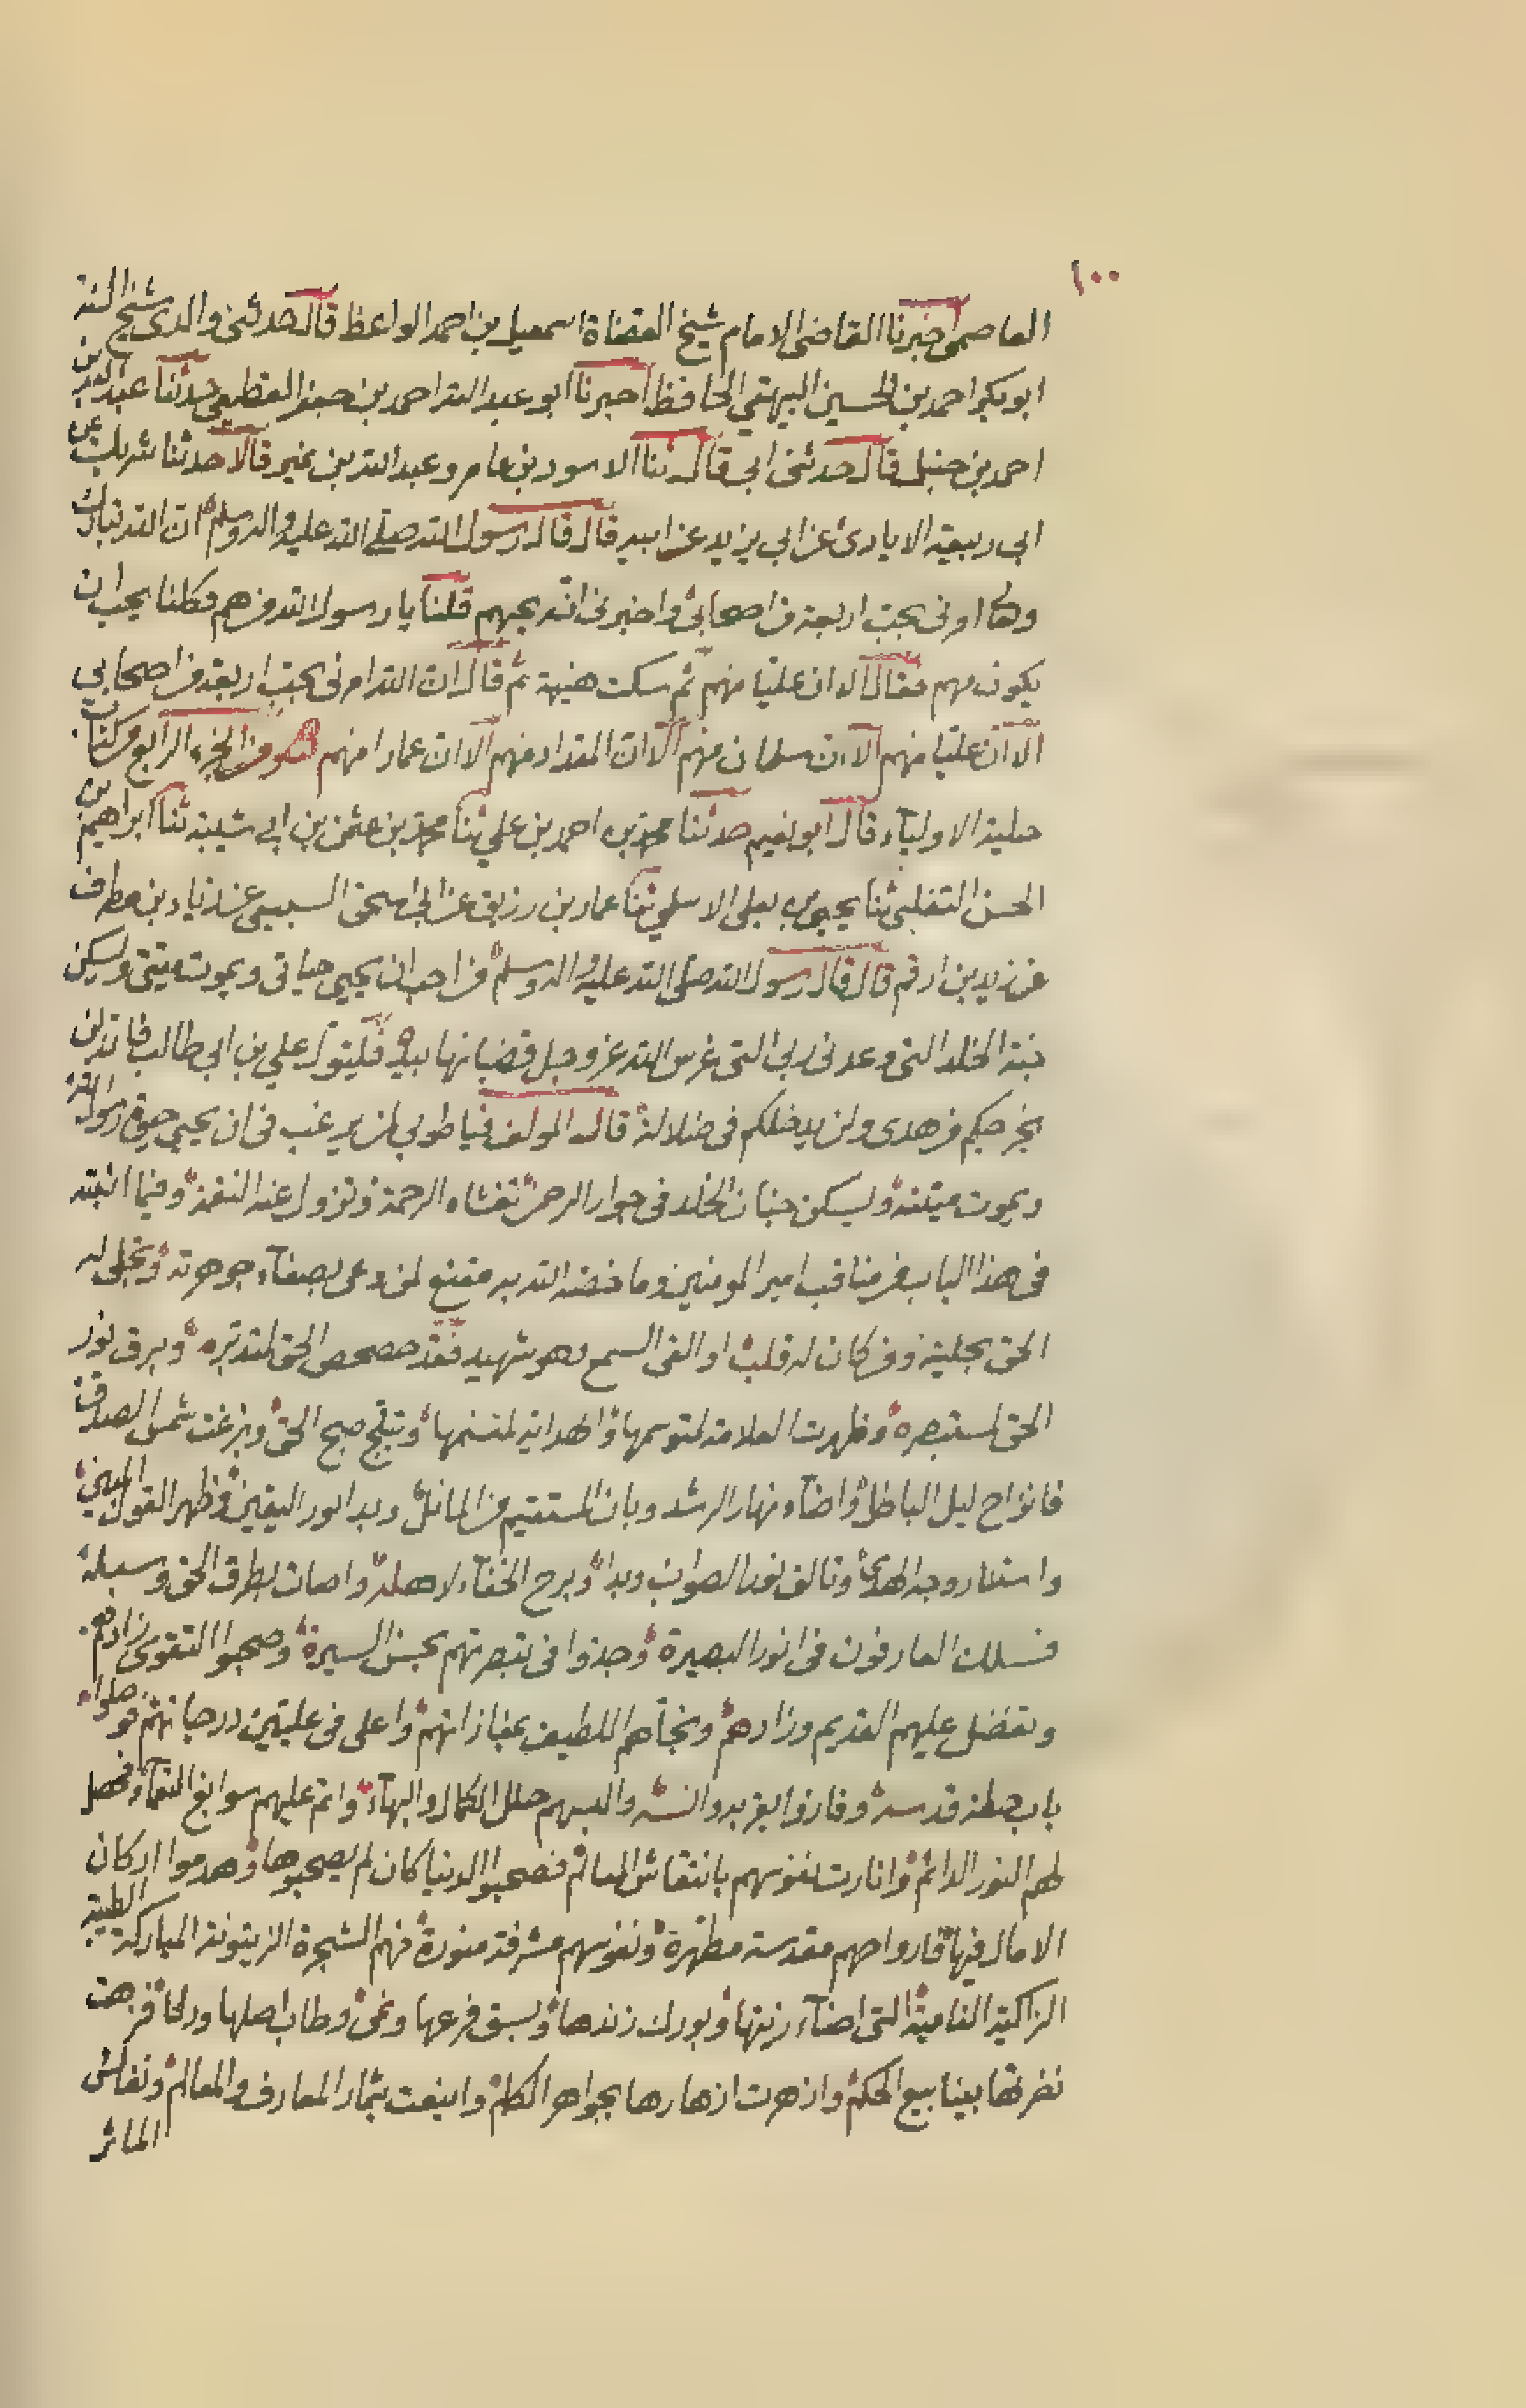 ١٠٠
العاصمى اخبرنا القاضى الامام شيخ القضاة اسمعيل بن احمد الواعظ قال حدثنى والدى شيخ السنة
ابو بكر احمد بن الحسين البيهقي الحافظ اخبرنا ابو عبد الله احمد بن جعفر القطيعى حدثنا عبد الله بن
احمد بن حنبل قال حدثنى ابى قال ثنا الاسود بن عامر وعبد الله بن نمير قالا حدثنا شريك عن
ابى ربيعة الايادى عن ابي بريد عن ابيه قال قال رسول الله صلى الله عليه واله وسلم ان الله تبارك
وتعا امرنى بحب اربعة من اصحابى واخبرنى انه يحبهم قلنا يا رسول الله من هم فكلنا يحب ان
يكون منهم فقال الا ان عليا منهم ثم سكت هنيهة ثم قال ان الله امرنى بحب اربعة من اصحابي
الا ان عليا منهم الا ان سلمان منهم الا ان المقداد منهم الا ان عمارا منهم ومن الجزء الرابع من كتاب
حلية الاولياء قال ابو نعيم حدثنا محمد بن احمد بن علي ثنا محمد بن عثمن بن ابي شيبة ثنا ابراهيم بن
الحسن التغلبى ثنا يحيى بن يعلى الاسلمي ثنا عمار بن رزيق عن ابى اسحق السبيعى عن زياد بن مطرف
عن زيد بن ارقم قال قال رسول الله صلى الله عليه واله وسلم من احب ان يحيى حياتى ويموت ميتتى ويسكن
جنة الخلد التى وعدنى ربى التى غرس الله عز وجل قضبانها بيده فليتول علي بن ابى طالب فانه لن
يخرجكم من هدى ولن يدخلكم فى ضلالة قال المولف فيا طوبى لمن يرغب فى ان يحيى حيوة رسول الله
ويموت ميتته وليسكن جنان الخلد فى جوار الرحمن تغشاه الرحمة وتزول عنه النقمة وفيما اثبته
فى هذا الباب من مناقب امير المومنين وما خصه الله به مقنع لمن وعى بصفاء جوهرته وتجلى له
الحق بجليته ومن كان له قلب او القى السمع وهو شهيد فقد حصحص الحق لمتدبره وبرق نور
الحق لمستبصره وظهرت العلامة لمتوسمها والهداية لمتسنمها وتبلج صبح الحق وبزغت شمس الصدق
فانزاح ليل الباطل واضاء نهار الرشد وبان المستقيم من المائل وبدا نور اليقين وظهر القول المبين
واستنار وجه الهدى وتالق نور الصواب وبدا وبرح الخفاء لاهله واضات لطرق الحق وسبله
فسلك العارفون فى انوار البصيرة وجذوا فى تبصرتهم بحسن السيرة وصحبوا التقوى زادهم
وتفضل عليهم القديم وزادهم ونجاهم اللطيف بمفازاتهم واعلى فى عليين درجاتهم فوصلوا
باب حطة قدسه وفازوا بقربه وانسه والبسهم حلل الكمال والبهاء واتم عليهم سوابغ النعماء فحصل
لهم النور الدائم وانارت نفوسهم بانتقاش المعالم فصحبوا الدنيا كان لم يصحبوها وهدموا اركان
الامال فيها فارواحهم مقدسة مطهرة ونفوسهم مشرفة منورة فهم الشجرة الزيتونة المباركة الطيبة
الزاكية النامية التى اضاء زيتها وبورك زندها وبسق فرعها ونمى وطاب اصلها وزكا فزهت
نضرتها بينابيع الحكم وازهرت ازهارها بجواهر الكلم واينعت بثمار المعارف والمعالم ونفائس
الماثر